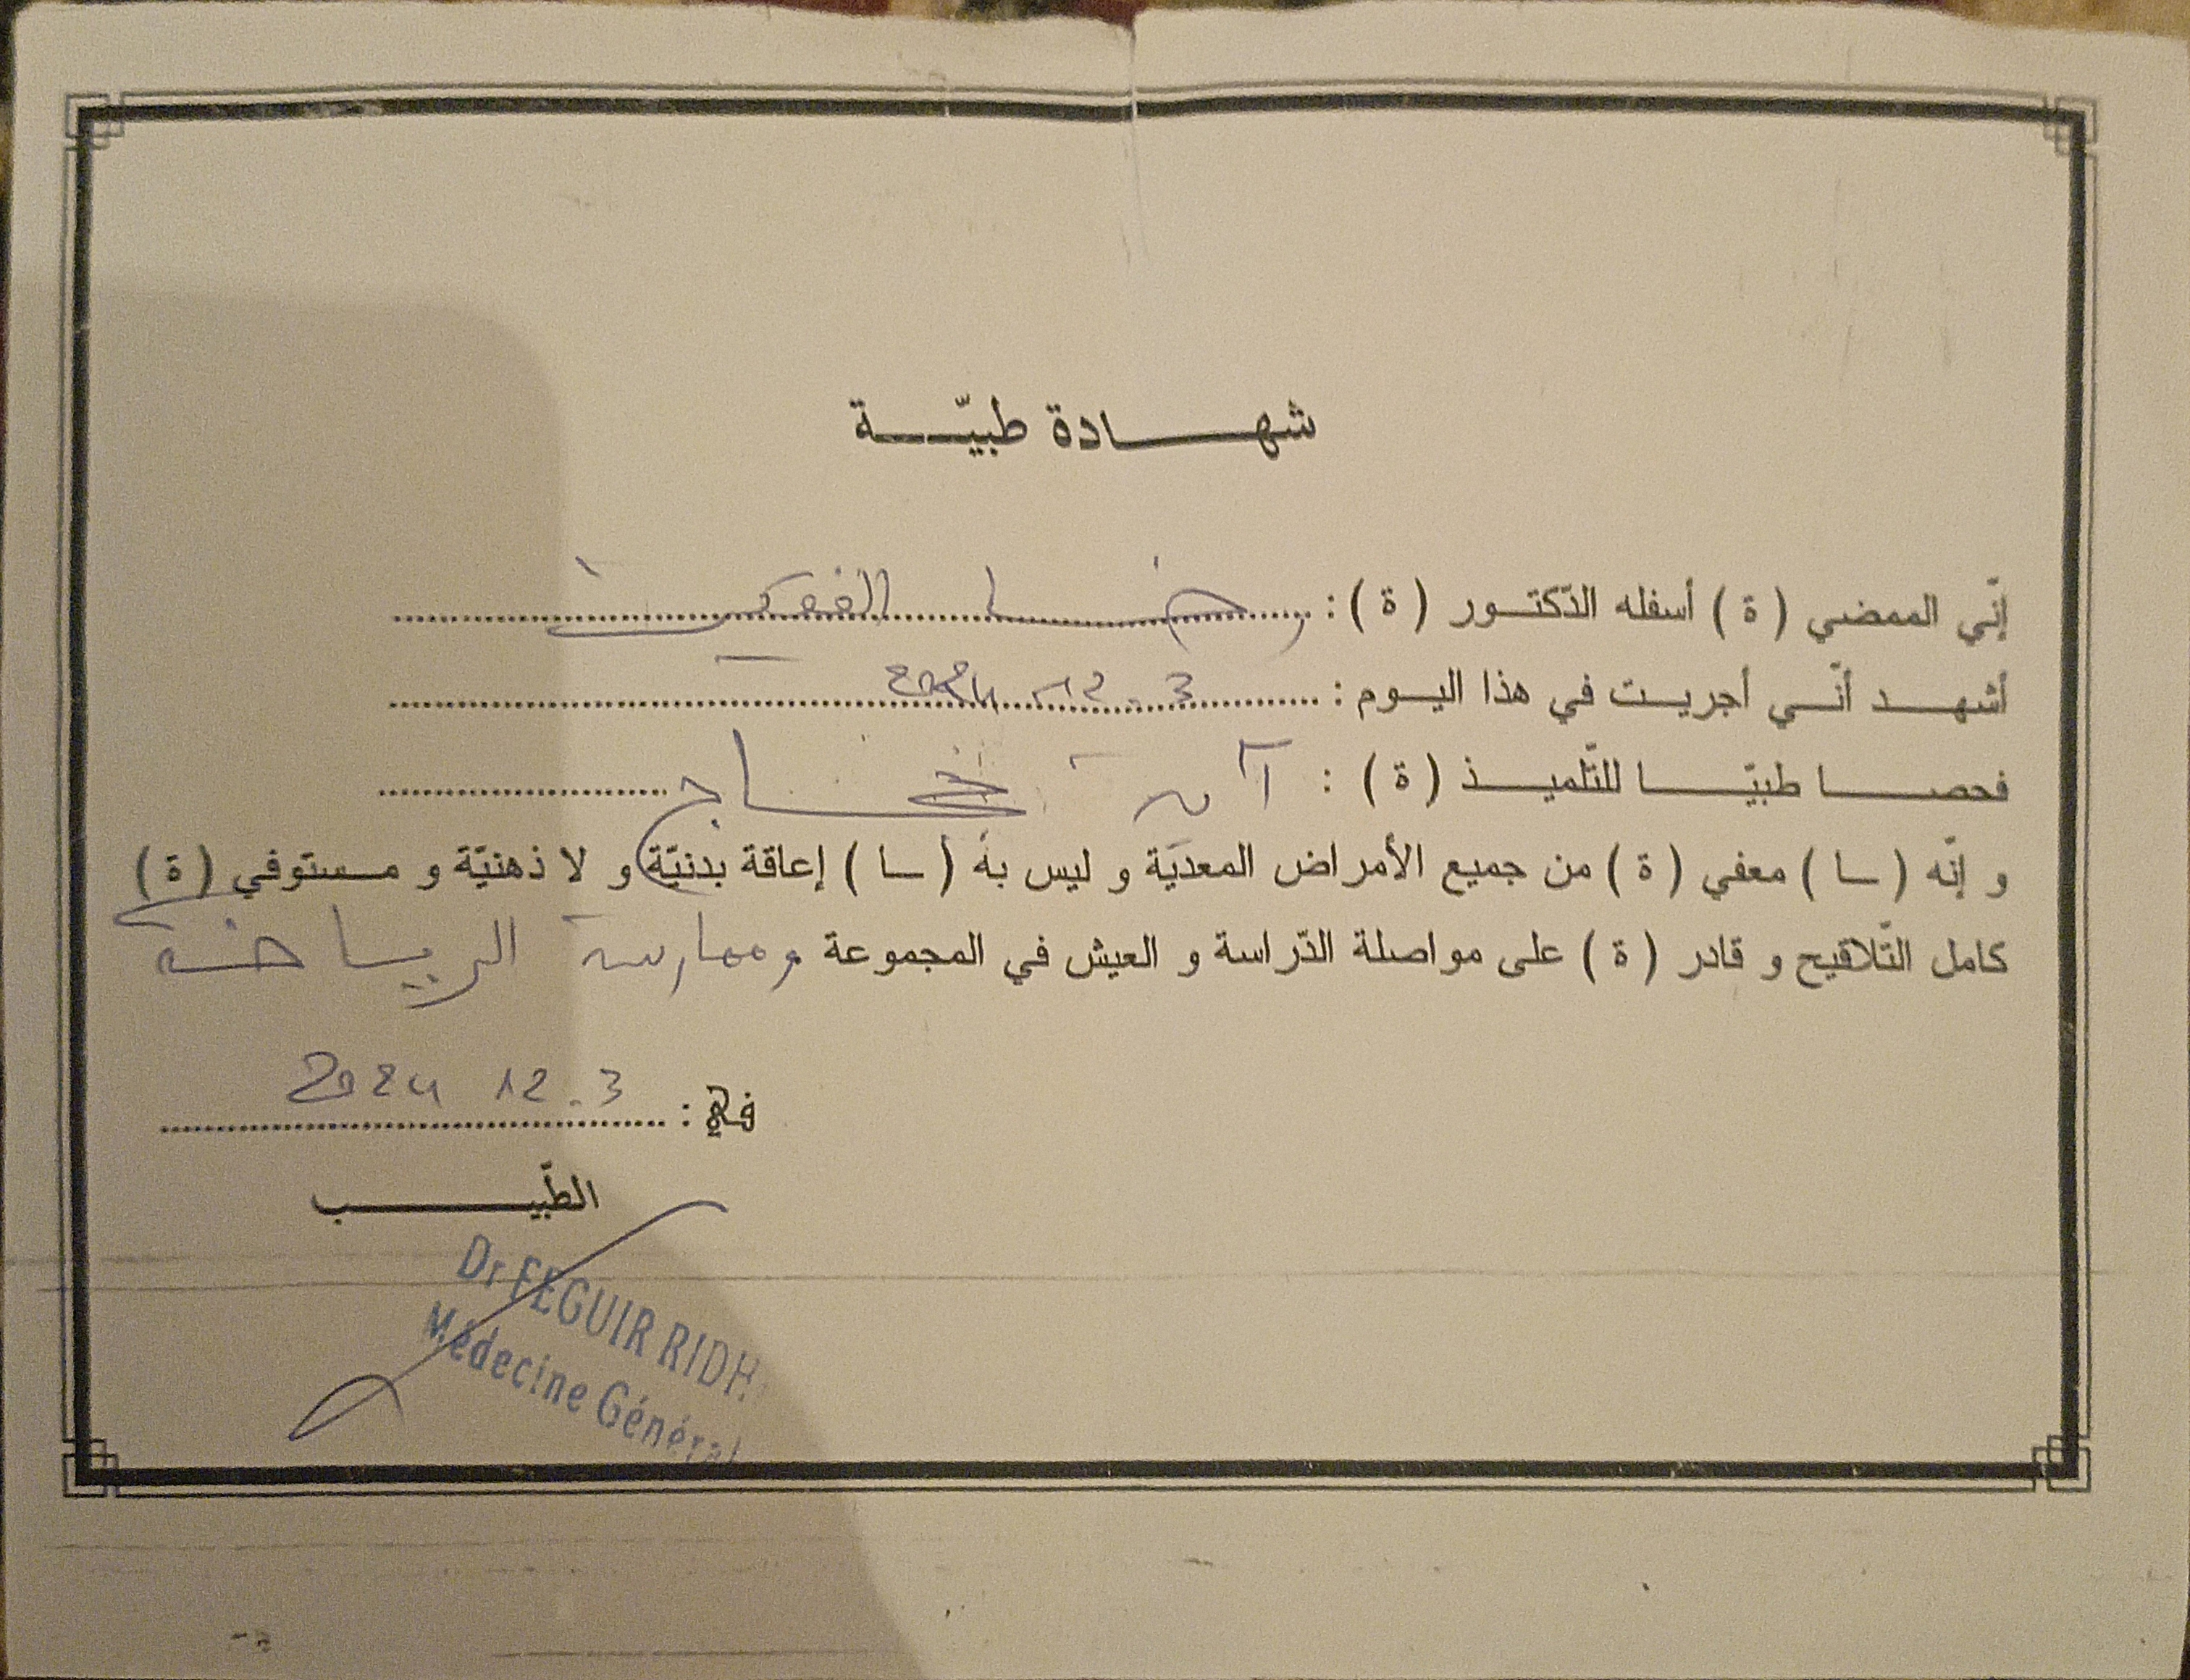 شهادة طبيّة
إنّي الممضي (ة) أسفله الدّكتور (ة) : رضا الفقير
أشهد أنّي أجريت في هذا اليوم : 3 - 12 - 2024
فحصا طبيّا للتّلميذ (ة) :
و إنّه (ــا) معفي (ة) من جميع الأمراض المعديّة و ليس به (ــا) إعاقة بدنيّة و لا ذهنيّة و مستوفي (ة)
كامل التّلاقيح و قادر (ة) على مواصلة الدّراسة و العيش في المجموعة وممارسة الرياضة
في : 3 - 12 2024
الطّبيب
Dr FEGUIR RIDH
Médecine Général